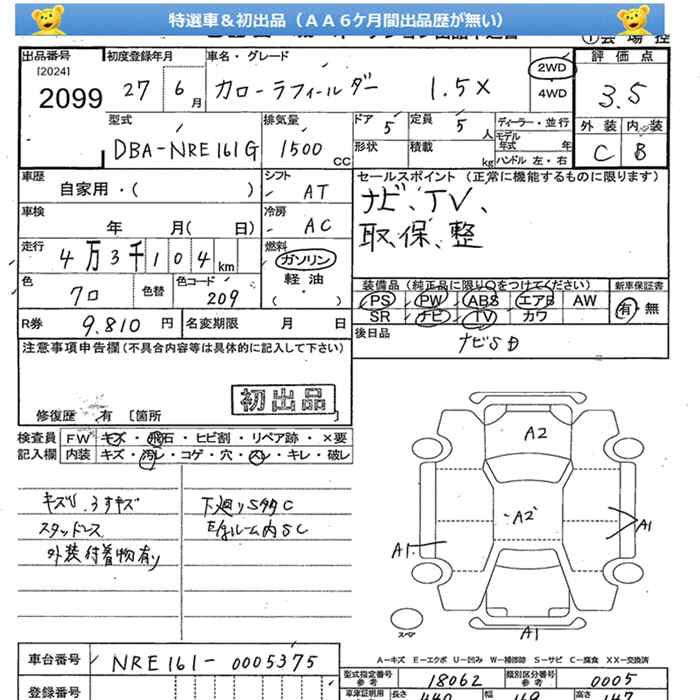 特選車＆初出品（ＡＡ６ケ月間出品歴が無い）
出品番号 [2024] 2099
初度登録年月 27 6月
車名・グレード カローラフィールダー 1.5X
2WD
4WD
評価点 3.5
外装 C 内装 B
型式 DBA-NRE161G
排気量 1500 cc
ドア 5 形状
定員 5人 積載 kg
ディーラー・並行
モデル年式 年
ハンドル 左・右
車歴 自家用・( )
シフト AT
車検 年 月( 日)
冷房 AC
走行 4万3千104km
燃料 ガソリン 軽油 ( ・ )
色 クロ 色替 色コード 209
R券 9.810円 名変期限 月 日
セールスポイント（正常に機能するものに限ります）
ナビ、TV、
取、保、整
装備品（純正品に限り○をつけてください） 新車保証書
PS PW ABS エアB AW 有・無
SR ナビ TV カワ
後日品 ナビSD
注意事項申告欄（不具合内容等は具体的に記入して下さい）
初出品
修復歴 有〔箇所 〕
検査員 FW キズ・飛石・ヒビ割・リペア跡・×要
記入欄 内装 キズ・汚レ・コゲ・穴・スレ・キレ・破レ
キズU. うすキズ
スタッドレス
外装付着物有り
下廻りSタタC
Eルーム内SC
A2
A2
A1
A1
A1
スペア
A-キズ E-エクボ U-凹み W-補修跡 S-サビ C-腐食 XX-交換済
車台番号 NRE161-0005375
登録番号
型式指定番号 参考 18062 類別区分番号 参考 0005
長さ 440 幅 169 高さ 147